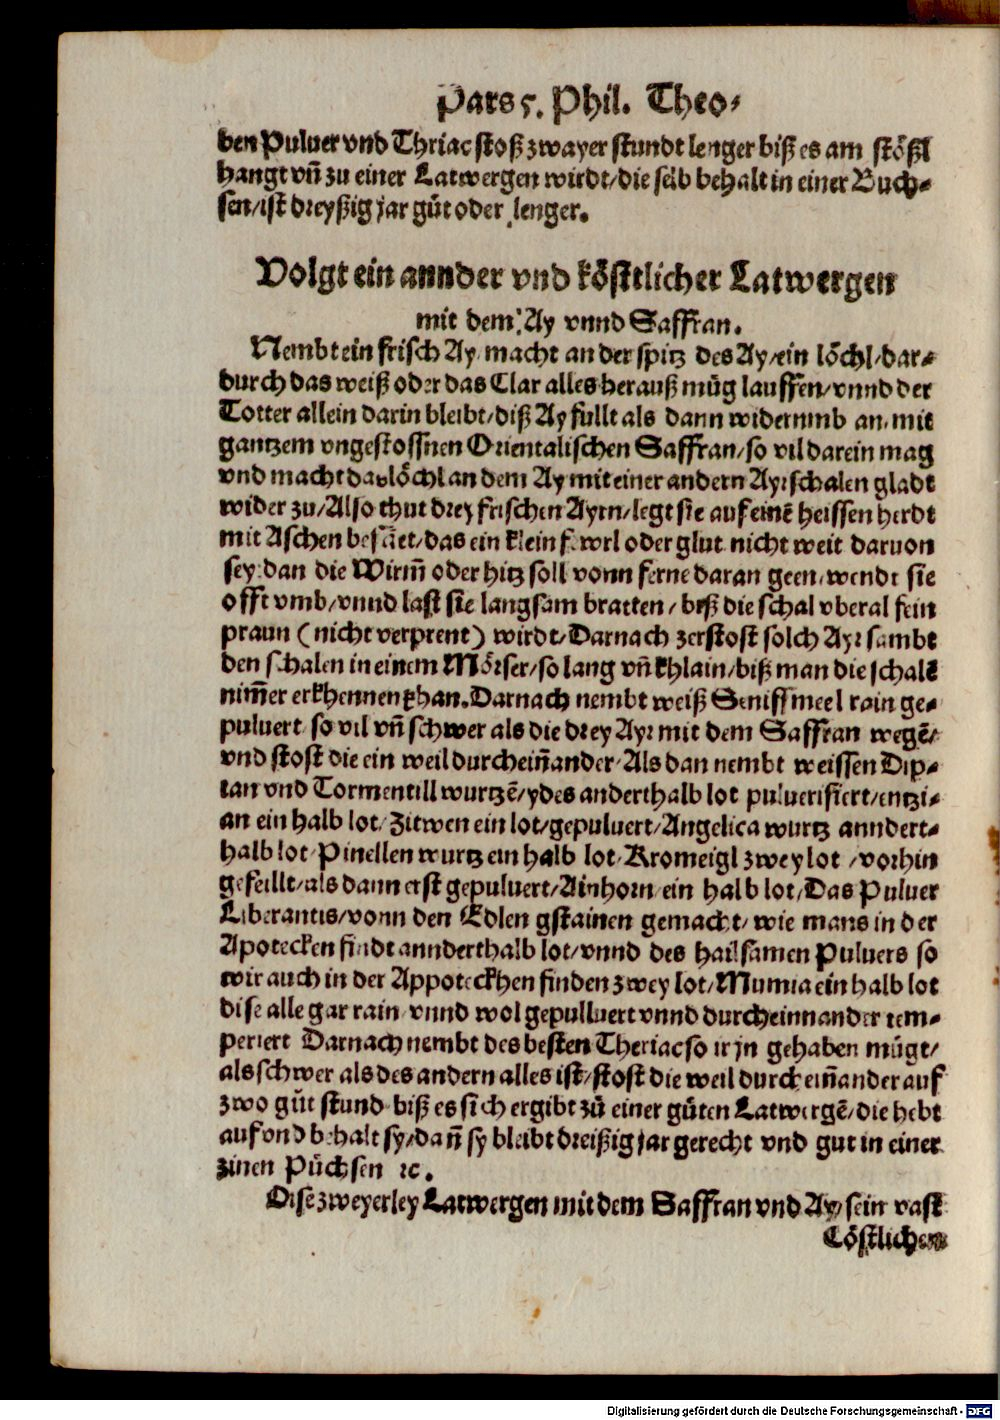 Pars 5. Phil. Theo⸗
den Puluer vnd Thriac stoß zwayer stundt lenger biß es am stößl
hangt vñ zu einer Latwergen wirdt/die selb behalt in einer Buch⸗
sen/ist dreyßig jar gůt oder lenger.
Volgt ein annder vnd köstlicher Latwergen
mit dem Ay vnnd Saffran.
Nembt ein frisch Ay macht an der spitz des Ay/ein löchl/dar⸗
durch das weiß oder das Clar alles herauß můg lauffen/vnnd der
Totter allein darin bleibt/diß Ay fullt als dann widerumb an/mit
gantzem vngestossnen Orientalischen Saffran/so vil darein mag
vnd macht das löchl an dem Ay mit einer andern Ayrschalen gladt
wider zu/Also thut drey frischen Ayrn/legt sie auf einē heissen herdt
mit Aschen besäet/das ein klein fewrl oder glut nicht weit daruon
sey dan die Wirm̃ oder hitz soll vonn ferne daran geen/wendt sie
offt vmb/vnnd last sie langsam bratten/biß die schal vberal fein
praun (nicht verprent) wirdt/Darnach zerstost solch Ayr sambt
den schalen in einem Mörser/so lang vñ khlain/biß man die schalē
nim̃er erkhennen khan. Darnach nembt weiß Seniffmeel rain ge⸗
puluert so vil vñ schwer als die drey Ayr mit dem Saffran wegē/
vnd stost die ein weil durcheiñander/Als dan nembt weissen Dip⸗
tan vnd Tormentill wurtzē/ydes anderthalb lot puluerisiert/entzi⸗
an ein halb lot/Zitwen ein lot/gepuluert/Angelica wurtz anndert⸗
halb lot/Pinellen wurtz ein halb lot/Kromeigl zwey lot/vorhin
gefeillt/als dann erst gepuluert/Ainhorn ein halb lot/Das Puluer
Liberantis/vonn den Edlen gstainen gemacht/wie mans in der
Apotecken findt annderthalb lot/vnnd des hailsamen Puluers so
wir auch in der Appoteckhen finden zwey lot/Mumia ein halb lot
dise alle gar rain vnnd wol gepulluert vnnd durcheinnander tem⸗
periert Darnach nembt des besten Theriac so ir jn gehaben mügt/
als schwer als des andern alles ist/stost die weil durch eiñander auf
zwo gůt stund biß es sich ergibt zů einer gůten Latwergē/die hebt
auf vnd behalt sy/dañ sy bleibt dreißig jar gerecht vnd gut in einer
zinen Püchsen ꝛc.
Dise zweyerley Latwergen mit dem Saffran vnd Ay/sein vast
Cöstlichen
Digitalisierung gefördert durch die Deutsche Forschungsgemeinschaft - DFG